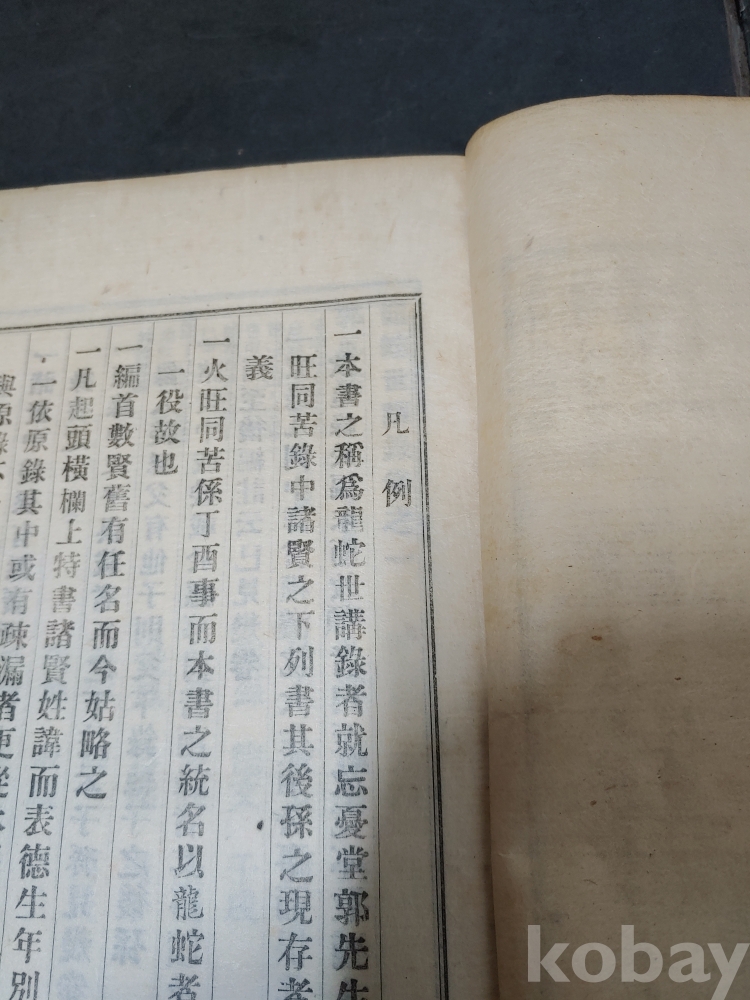 凡例
一本書之稱爲龍蛇世講錄者就忘憂堂郭先生
旺同苦錄中諸賢之下列書其後孫之現存者
義
一火旺同苦係丁酉事而本書之統名以龍蛇者
一役故也
一編首數賢舊有任名而今姑略之
一凡起頭橫欄上特書諸賢姓諱而表德生年別
一依原錄其中或有疎漏者更從
與原錄
kobay